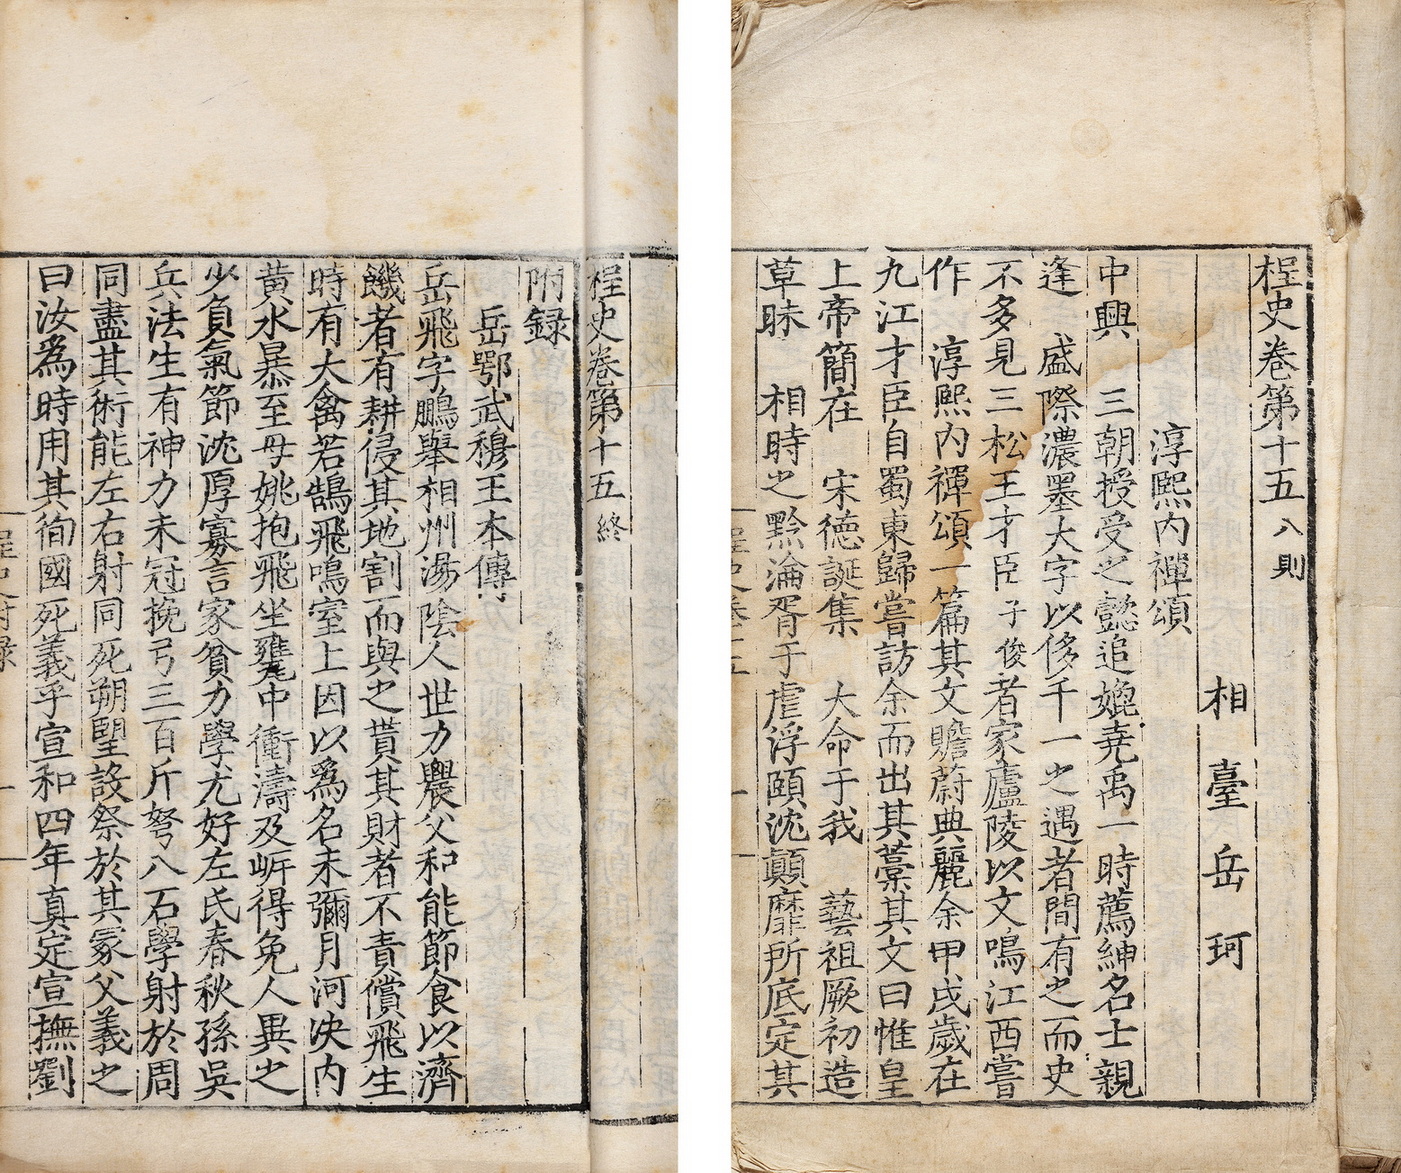 桯史卷第十五 八則
相臺岳珂
淳熙内禪頌
中興 三朝授受之懿追媲堯禹一時薦紳名士親
逢 盛際濃墨大字以侈千一之遇者間有之而史
不多見三松王才臣子俊者家廬陵以文鳴江西嘗
作 淳熙内禪頌一篇其文贍蔚典麗余甲戌歲在
九江才臣自蜀東歸嘗訪余而出其藁其文曰惟皇
上帝簡在 宋德誕集 大命于我 藝祖厥初造
草昧 相時之黔淪胥于虐浮頤沈顛靡所底定其
桯史卷第十五 終
附録
岳鄂武穆王本傳
岳飛字鵬舉相州湯陰人世力農父和能節食以濟
饑者有耕侵其地割而與之貰其財者不責償飛生
時有大禽若鵠飛鳴室上因以爲名未彌月河決内
黄水暴至母姚抱飛坐甕中衝濤及㟁得免人異之
少負氣節沈厚寡言家貧力學尤好左氏春秋孫吳
兵法生有神力未冠挽弓三百斤弩八石學射於周
同盡其術能左右射同死朔望設祭於其冢父義之
曰汝爲時用其徇國死義乎宣和四年真定宣撫劉